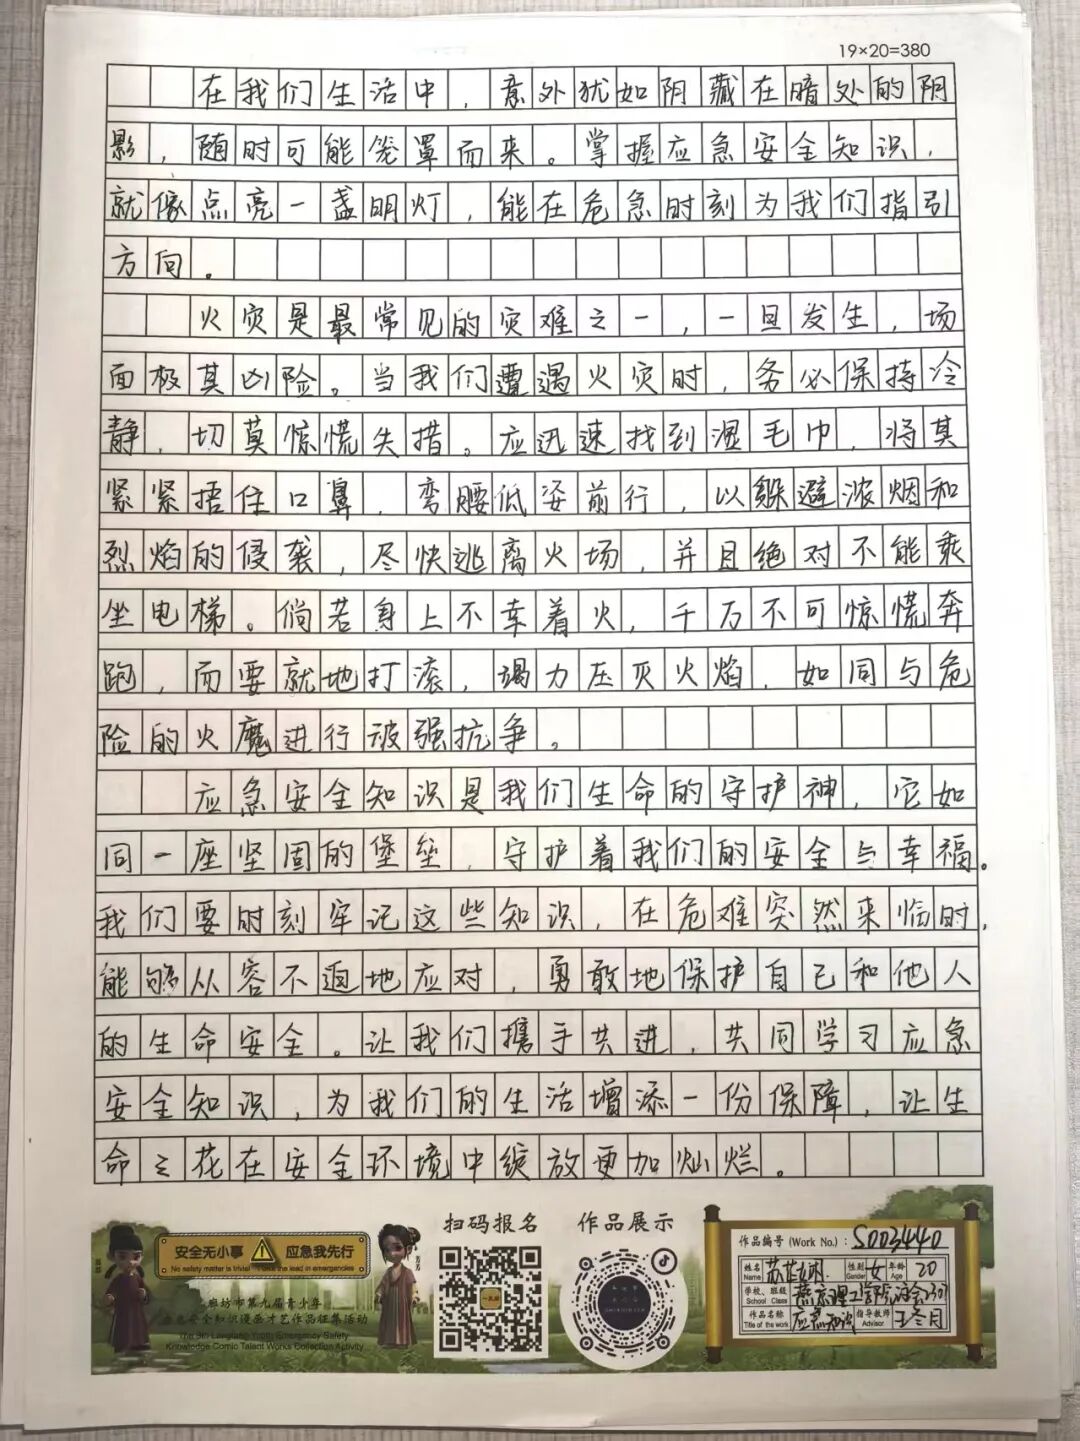 19×20=380
在我们生活中，意外犹如阴藏在暗处的阴
影，随时可能笼罩而来。掌握应急安全知识，
就像点亮一盏明灯，能在危急时刻为我们指引
方向。
火灾是最常见的灾难之一，一旦发生，场
面极其凶险。当我们遭遇火灾时，务必保持冷
静，切莫惊慌失措。应迅速找到湿毛巾，将其
紧紧捂住口鼻，弯腰低姿前行，以躲避浓烟和
烈焰的侵袭，尽快逃离火场，并且绝对不能乘
坐电梯。倘若身上不幸着火，千万不可惊慌奔
跑，而要就地打滚，竭力压灭火焰，如同与危
险的火魔进行顽强抗争。
应急安全知识是我们生命的守护神，它如
同一座坚固的堡垒，守护着我们的安全与幸福。
我们要时刻牢记这些知识，在危难突然来临时，
能够从容不迫地应对，勇敢地保护自己和他人
的生命安全。让我们携手共进，共同学习应急
安全知识，为我们的生活增添一份保障，让生
命之花在安全环境中绽放更加灿烂。
扫码报名 作品展示
安全无小事 应急我先行
No safety matter is trivial Take the lead in emergencies
廊坊市第九届青少年
应急安全知识漫画才艺作品征集活动
The 9th Langfang Youth Emergency Safety
Knowledge Comic Talent Works Collection Activity
作品编号 (Work No.)：S003440
姓名 Name 性别 Gender 女 年龄 Age 20
学校、班级 School Class 燕京理工学院
作品名称 Title of the work 应急知识 指导教师 Advisor 王冬月